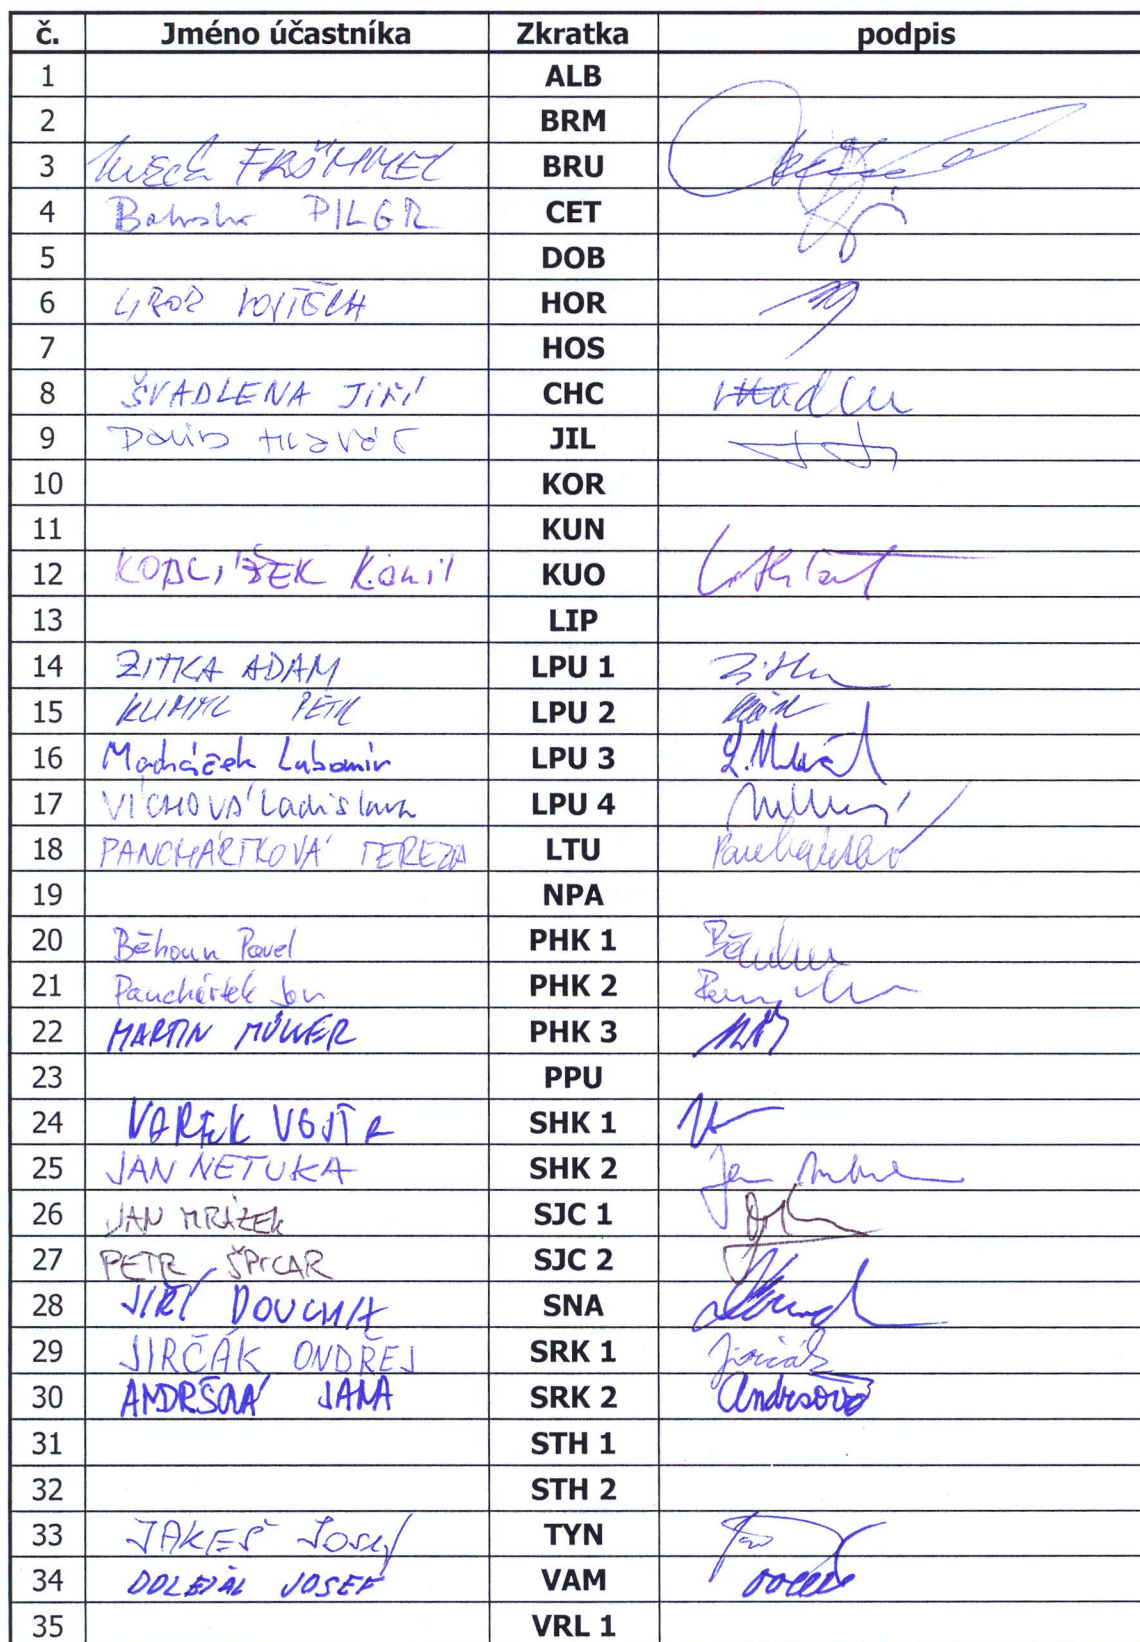 č. Jméno účastníka Zkratka podpis
1 ALB
2 BRM
3 FRÖMMEL BRU
4 PILGR CET
5 DOB
6 LIBOR VOJTĚCH HOR
7 HOS
8 ŠVADLENA JIŘÍ CHC
9 David Hlaváč JIL
10 KOR
11 KUN
12 Kamil KUO
13 LIP
14 ZITKA ADAM LPU 1 Zitka
15 PETR LPU 2
16 Macháček Lubomír LPU 3
17 VÍCHOVÁ Ladislava LPU 4
18 PANCHÁRTKOVÁ TEREZA LTU Panchártková
19 NPA
20 Běhoun Pavel PHK 1 Běhoun
21 Panchártek Jan PHK 2
22 MARTIN MÜLLER PHK 3
23 PPU
24 SHK 1
25 JAN NETUKA SHK 2 Jan
26 JAN MRÁZEK SJC 1
27 PETR ŠPICAR SJC 2
28 JIŘÍ DOUCHA SNA
29 JIRČÁK ONDŘEJ SRK 1 Jirčák
30 ANDRŠOVÁ JANA SRK 2 Andrsová
31 STH 1
32 STH 2
33 JAKEŠ Josef TYN
34 DOLEŽAL JOSEF VAM
35 VRL 1